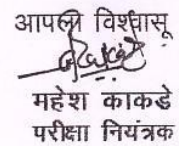 आपला विश्वासू
महेश काकडे
परीक्षा नियंत्रक